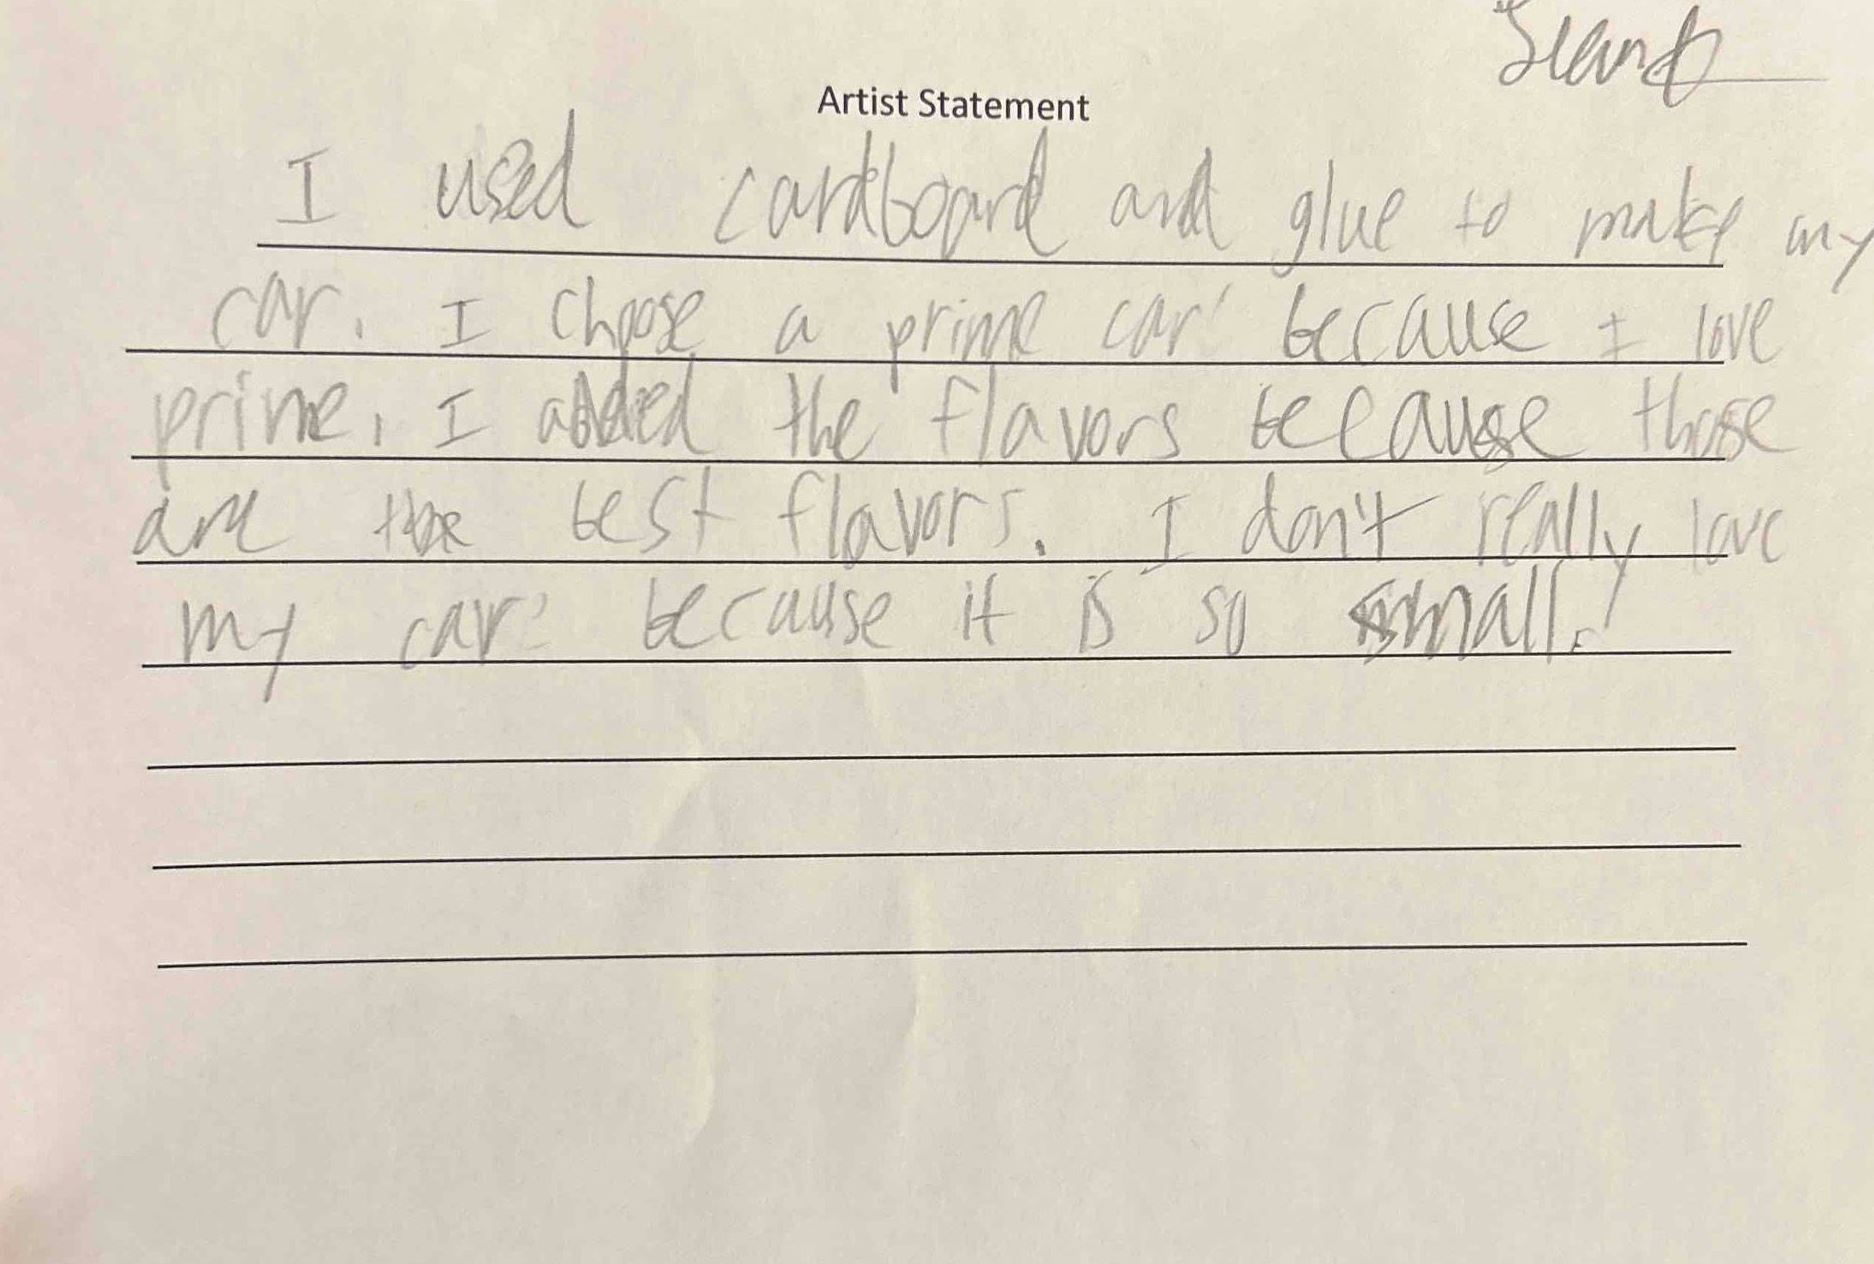 Artist Statement
I used cardboard and glue to make my
car. I choose a prime car because I love
prime, I added the flavors because those
are the best flavors. I don't really love
my car because it is so small.